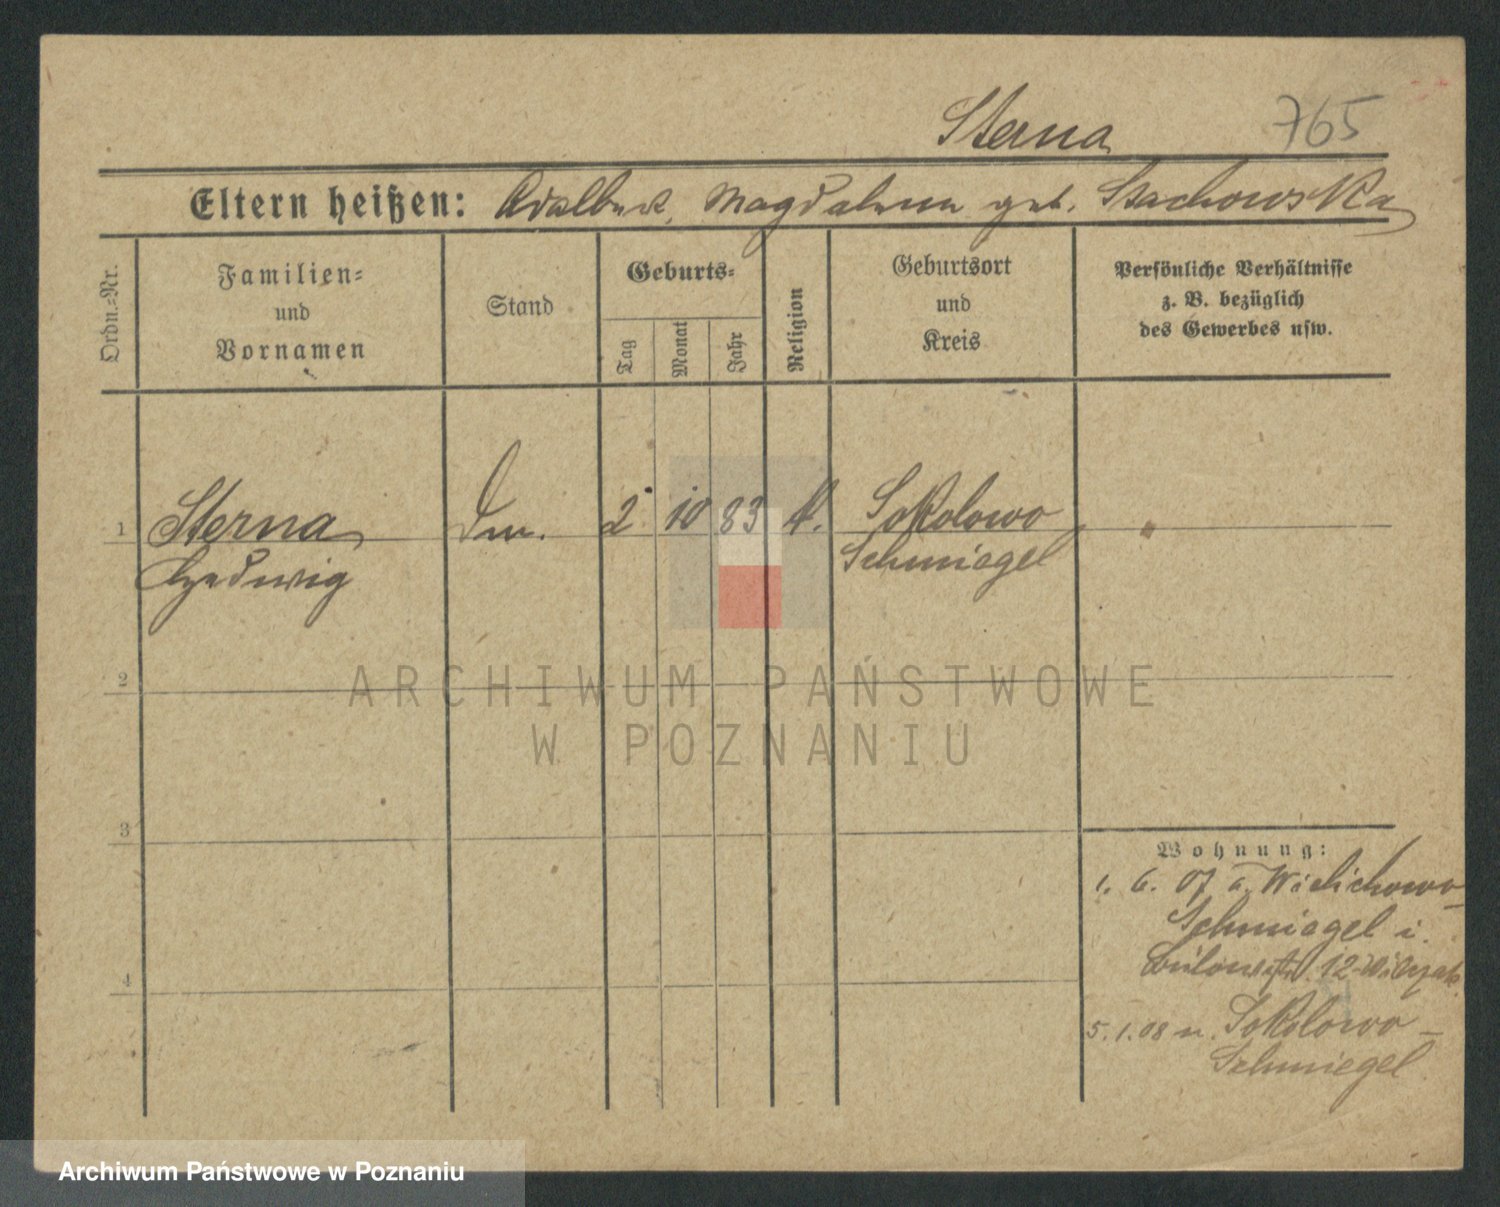 Sterna 765
Eltern heißen: Adalbert, Magdalena geb. Stachowska
Ordn.-Nr.
Familien-
und
Vornamen
Stand
Geburts-
Tag
Monat
Jahr
Religion
Geburtsort
und
Kreis
Persönliche Verhältnisse
z. B. bezüglich
des Gewerbes usw.
1 Sterna 2 10 83 k. Sokolowo
Hedwig Schmiegel
2
3
4
Wohnung:
1. 6. 07 a. Wielichowo
Schmiegel i.
12
5. 1. 08 n. Sokolowo -
Schmiegel
ARCHIWUM PAŃSTWOWE
W POZNANIU
Archiwum Państwowe w Poznaniu